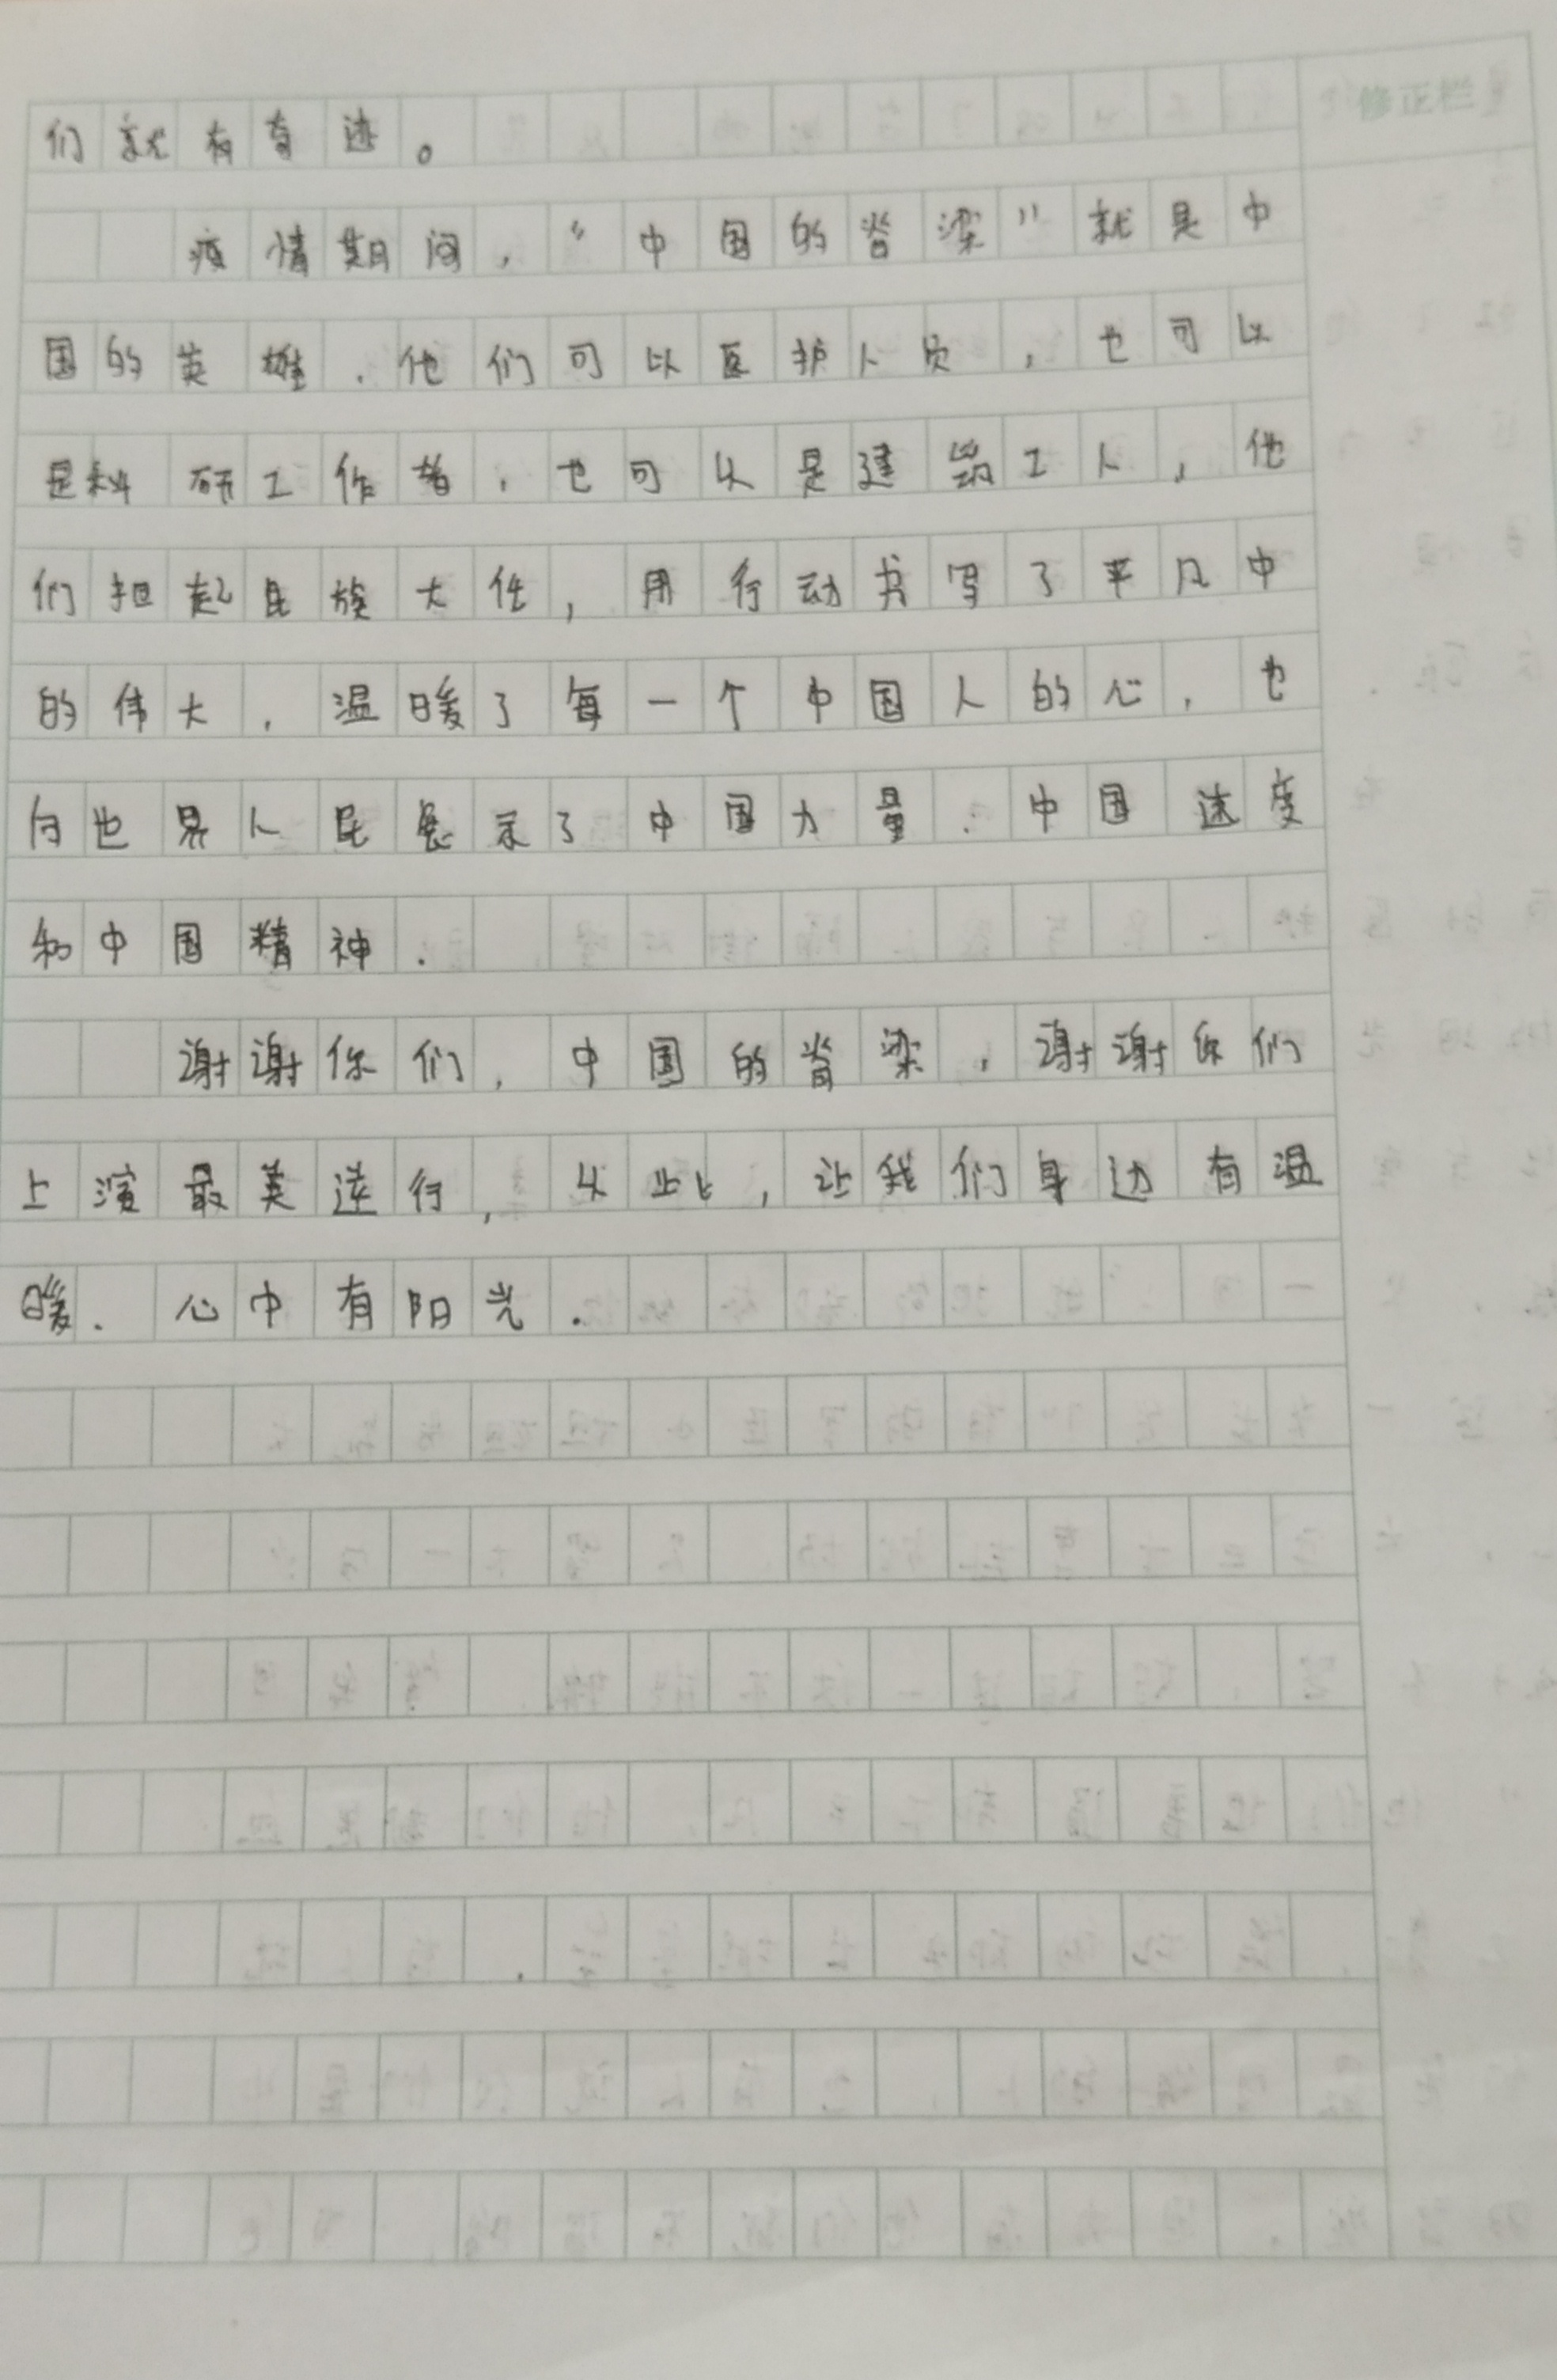 修正栏
们就有奇迹。
疫情期间，“中国的脊梁”就是中
国的英雄．他们可以医护人员，也可以
是科研工作者，也可以是建筑工人，他
们担起民族大任，用行动书写了平凡中
的伟大，温暖了每一个中国人的心，也
向世界人民展示了中国力量．中国速度
和中国精神．
谢谢你们，中国的脊梁，谢谢你们
上演最美逆行，从此，让我们身边有温
暖．心中有阳光．